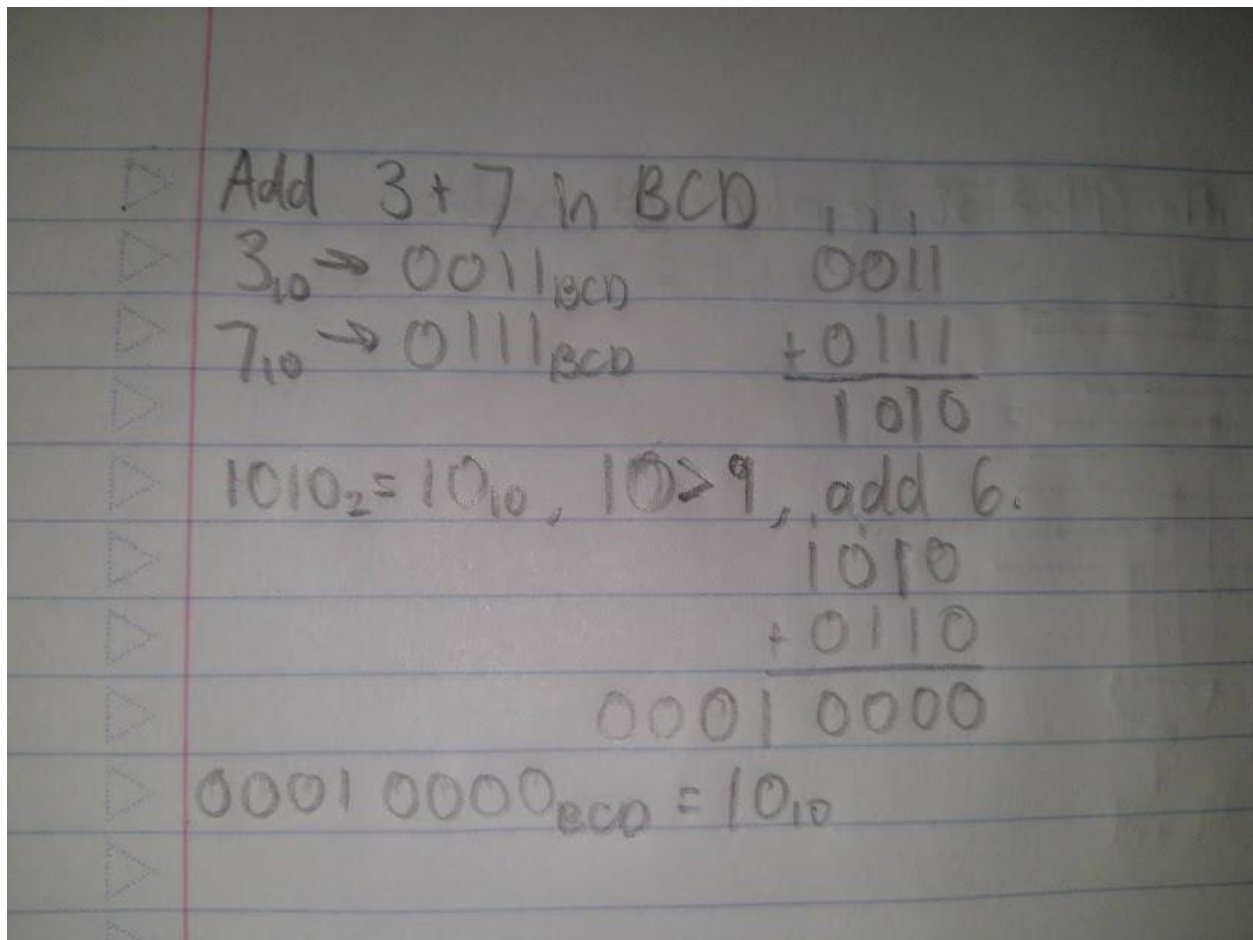 Add 3 + 7 in BCD
1 1 1
3₁₀ → 0011BCD 0011
7₁₀ → 0111BCD + 0111
1010
1010₂ = 10₁₀, 10 > 9, add 6.
1010
+ 0110
0001 0000
0001 0000BCD = 10₁₀